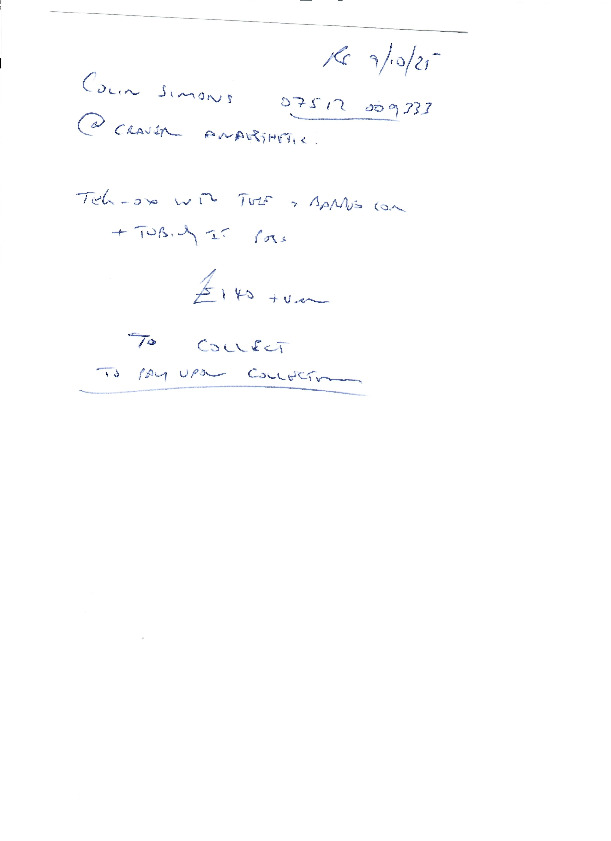 7/10/25
COLIN SIMONS 07512 009333
@ CRAVEN ANAESTHETIC.
WITH
+ TUBING
£140 + VAT
TO COLLECT
TO PAY UPON COLLECTION